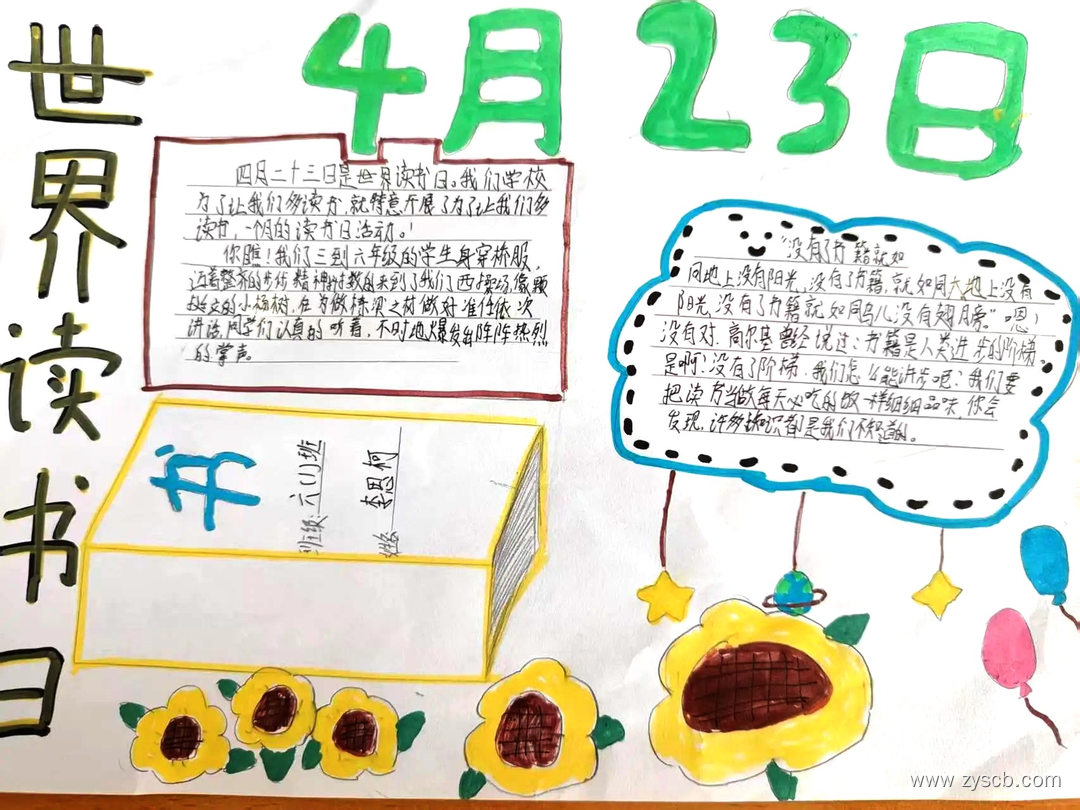 世界读书日
4月23日
四月二十三日是世界读书日。我们学校
为了让我们多读书,就特意开展了为了让我们多
读书,一个月的读书日活动。!
你瞧!我们三到六年级的学生身穿校服,
迈着整齐的步伐精神抖擞的来到了我们西操场像颗
挺立的小杨树,在为做栋梁之材做好准任依次
讲话,同学们认真的听着,不时地爆发出阵阵热烈
的掌声。
"没有了书籍就如
同地上没有阳光,没有了书籍,就如同大地上没有
阳光,没有了书籍就如同鸟儿没有翅膀。"嗯!
没有对,高尔基曾经说过:书籍是人类进步的阶梯,
是啊!没有了阶梯,我们怎么能进步呢?我们要
把读书当做每天必吃的饭一样细细品味,你会
发现,许多知识都是我们不知道的。
书
班级:六(1)班
姓名:李思柯
www.zyscb.com